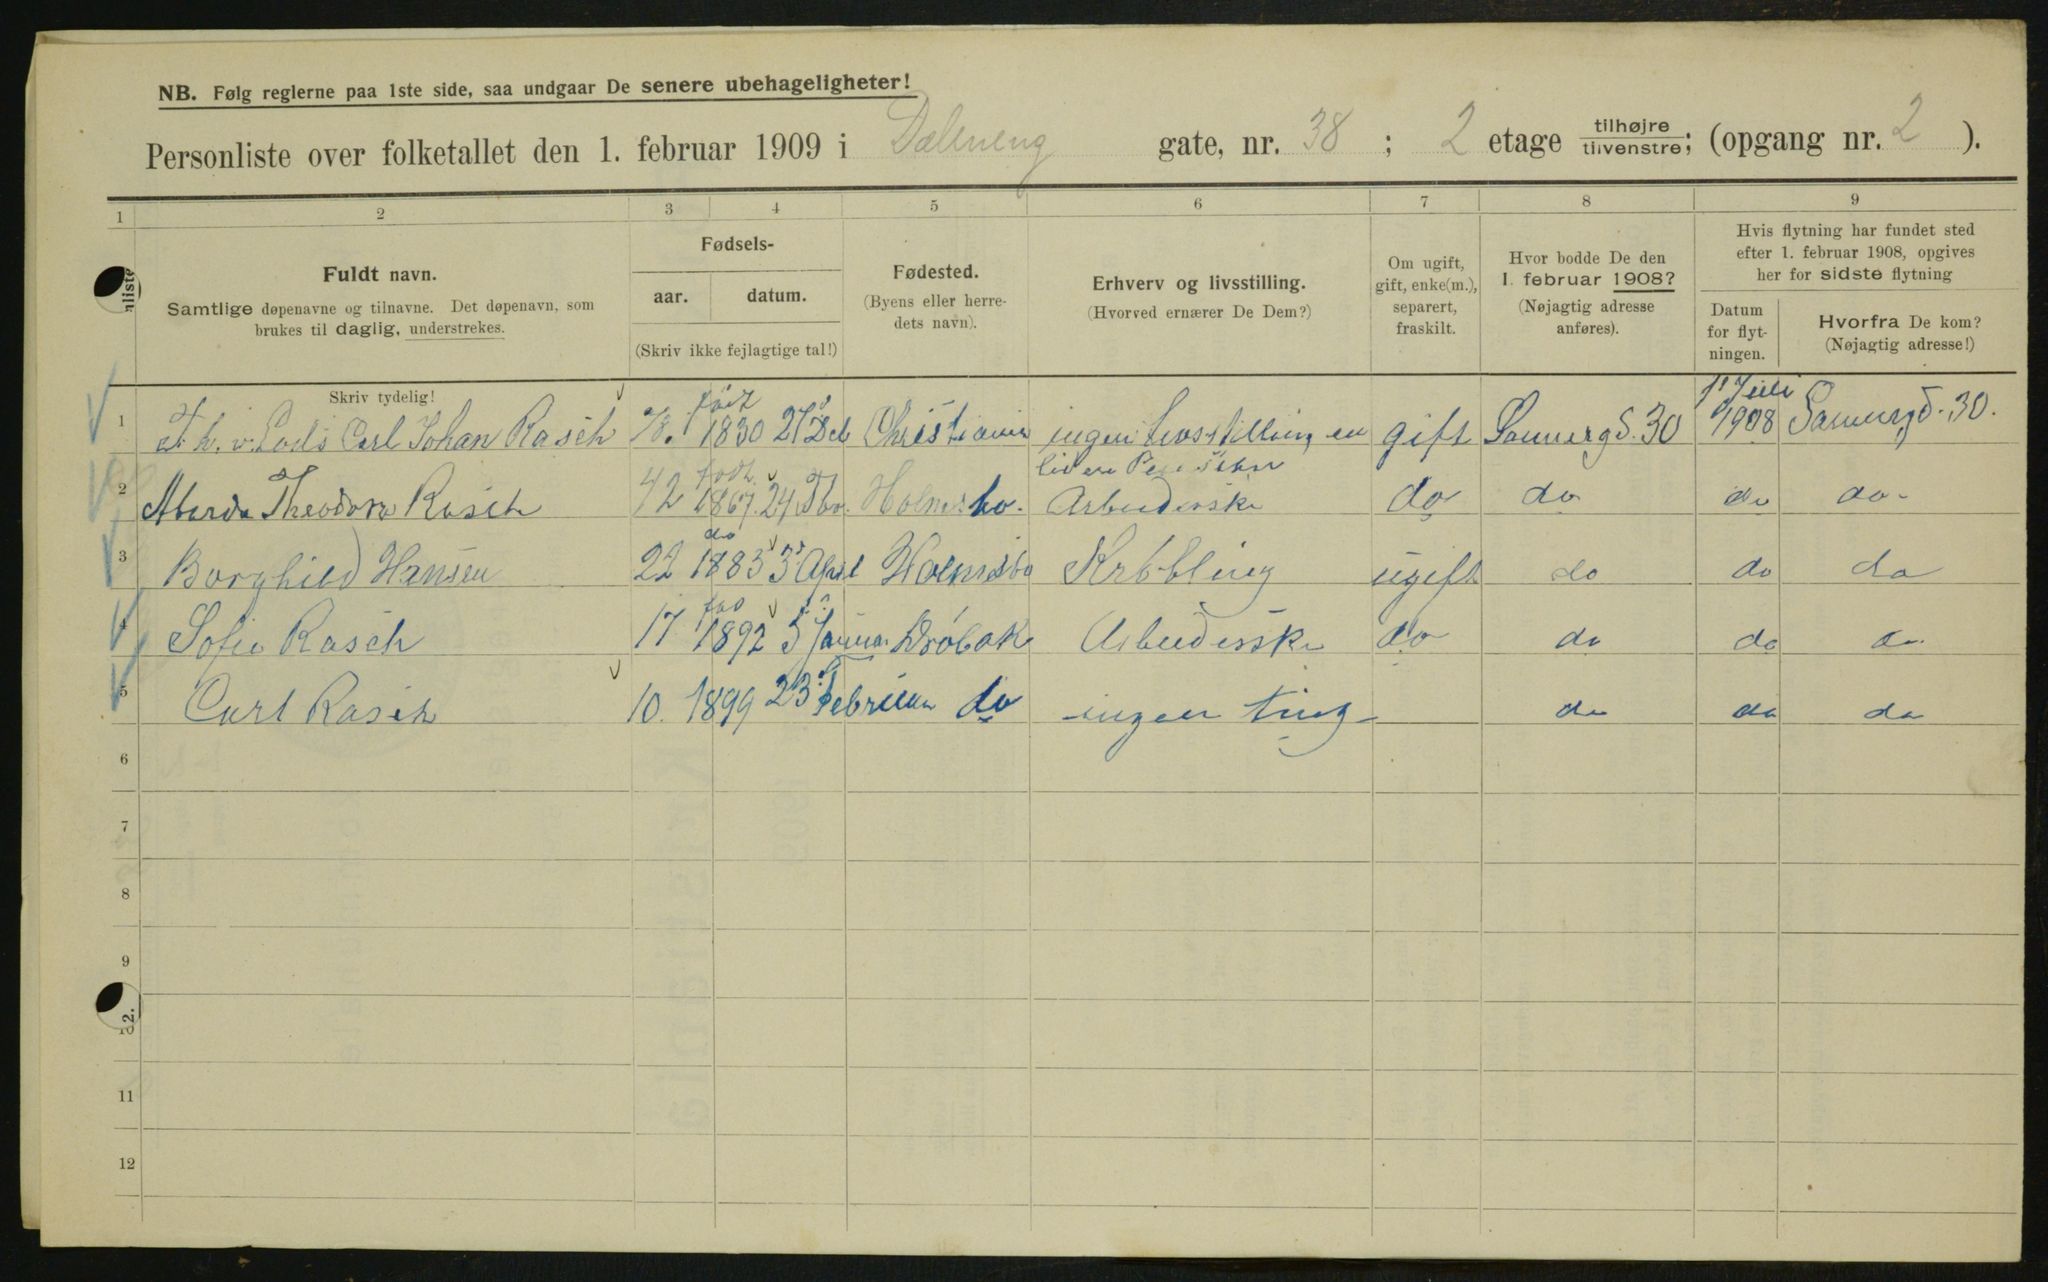 NB. Følg reglerne paa 1ste side, saa undgaar De senere ubehageligheter!
Personliste over folketallet den 1. februar 1909 i Dælneng gate, nr. 38 ; 2 etage tilhøjre tilvenstre; (opgang nr. 2 ).
1 2 3 4 5 6 7 8 9
Fuldt navn.
Samtlige døpenavne og tilnavne. Det døpenavn, som
brukes til daglig, understrekes.
Skriv tydelig!
Fødsels-
aar. datum.
(Skriv ikke fejlagtige tal!)
Fødested.
(Byens eller herre-
dets navn).
Erhverv og livsstilling.
(Hvorved ernærer De Dem?)
Om ugift,
gift, enke(m.),
separert,
fraskilt.
Hvor bodde De den
1. februar 1908?
(Nøjagtig adresse
anføres).
Hvis flytning har fundet sted
efter 1. februar 1908, opgives
her for sidste flytning
Datum
for flyt-
ningen.
Hvorfra De kom?
(Nøjagtig adresse!)
1 Carl Johan Rasch 78. 1830 27 Christiania ingen gift 30 1 Juli 1908 30.
2 Theodora Rasch 42 født 1867. 24 Holmsbo. Arbeiderske do do do do
3 Borghild Hansen 22 do 1883 3 April Holmsbo Krøbling ugift do do do
4 Sofie Rasch 17 1892 5 Januar Drøbak Arbeiderske do do do do
5 Carl Rasch 10. 1899 23 Februar do ingen ting do do do
6
7
8
9
10
11
12